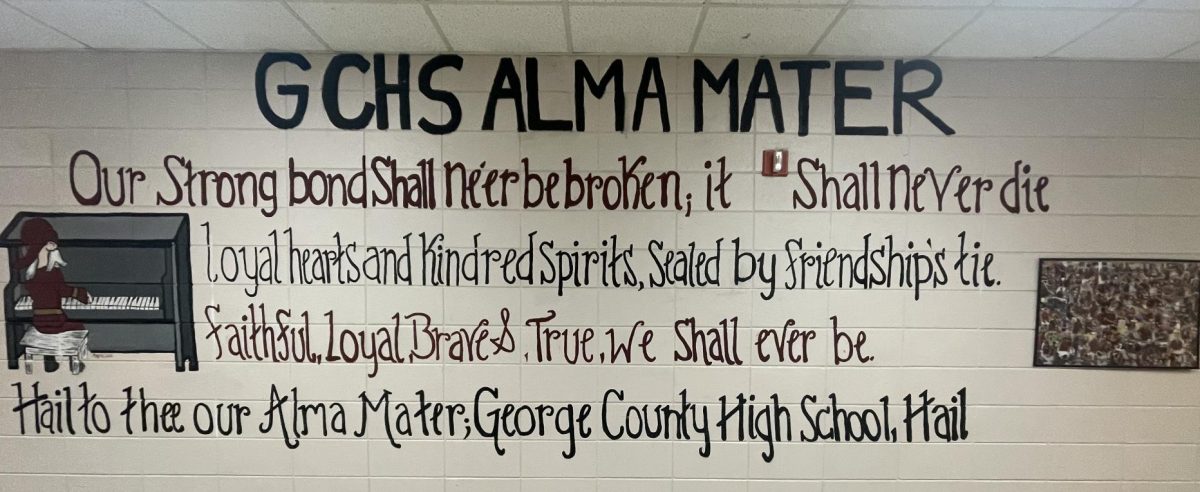 GCHS ALMA MATER
Our Strong bond Shall ne'er be broken; it Shall never die
loyal hearts and kindred spirits, Sealed by friendship's tie.
faithful, Loyal, Brave & , True, We Shall ever be.
Hail to thee our Alma Mater; George County High School, Hail